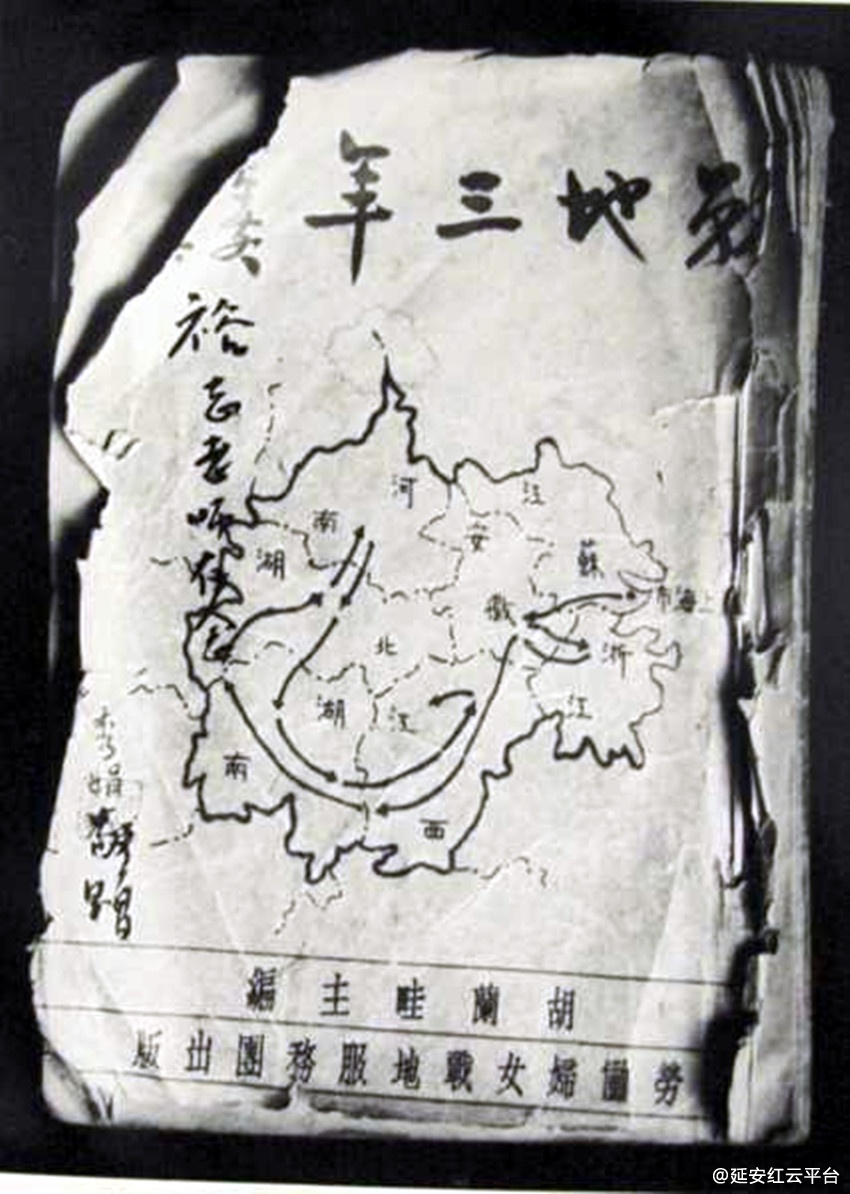 戰地三年
裕志老師
娟
敬贈
河南
江蘇
安徽
上海市
湖北
浙江
湖南
江西
胡蘭畦主編
勞働婦女戰地服務團出版
@延安红云平台